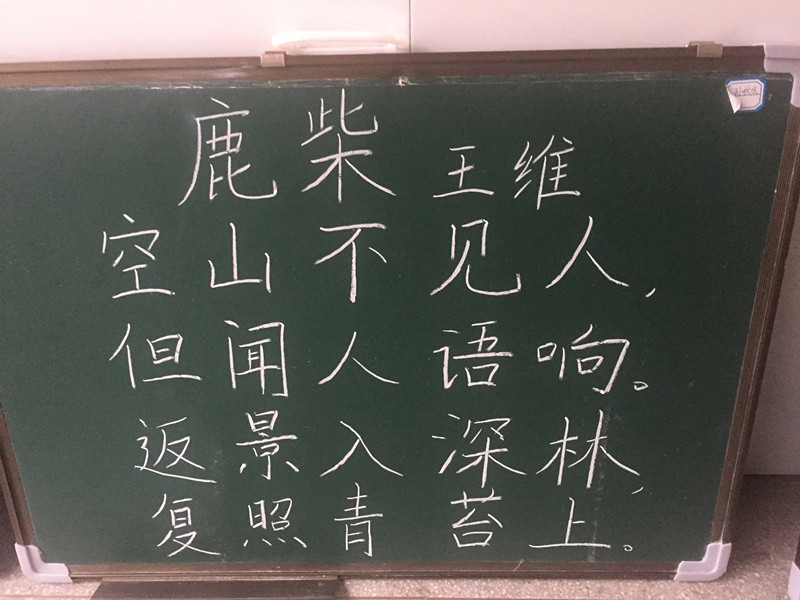 鹿柴 王维
空山不见人，
但闻人语响。
返景入深林，
复照青苔上。